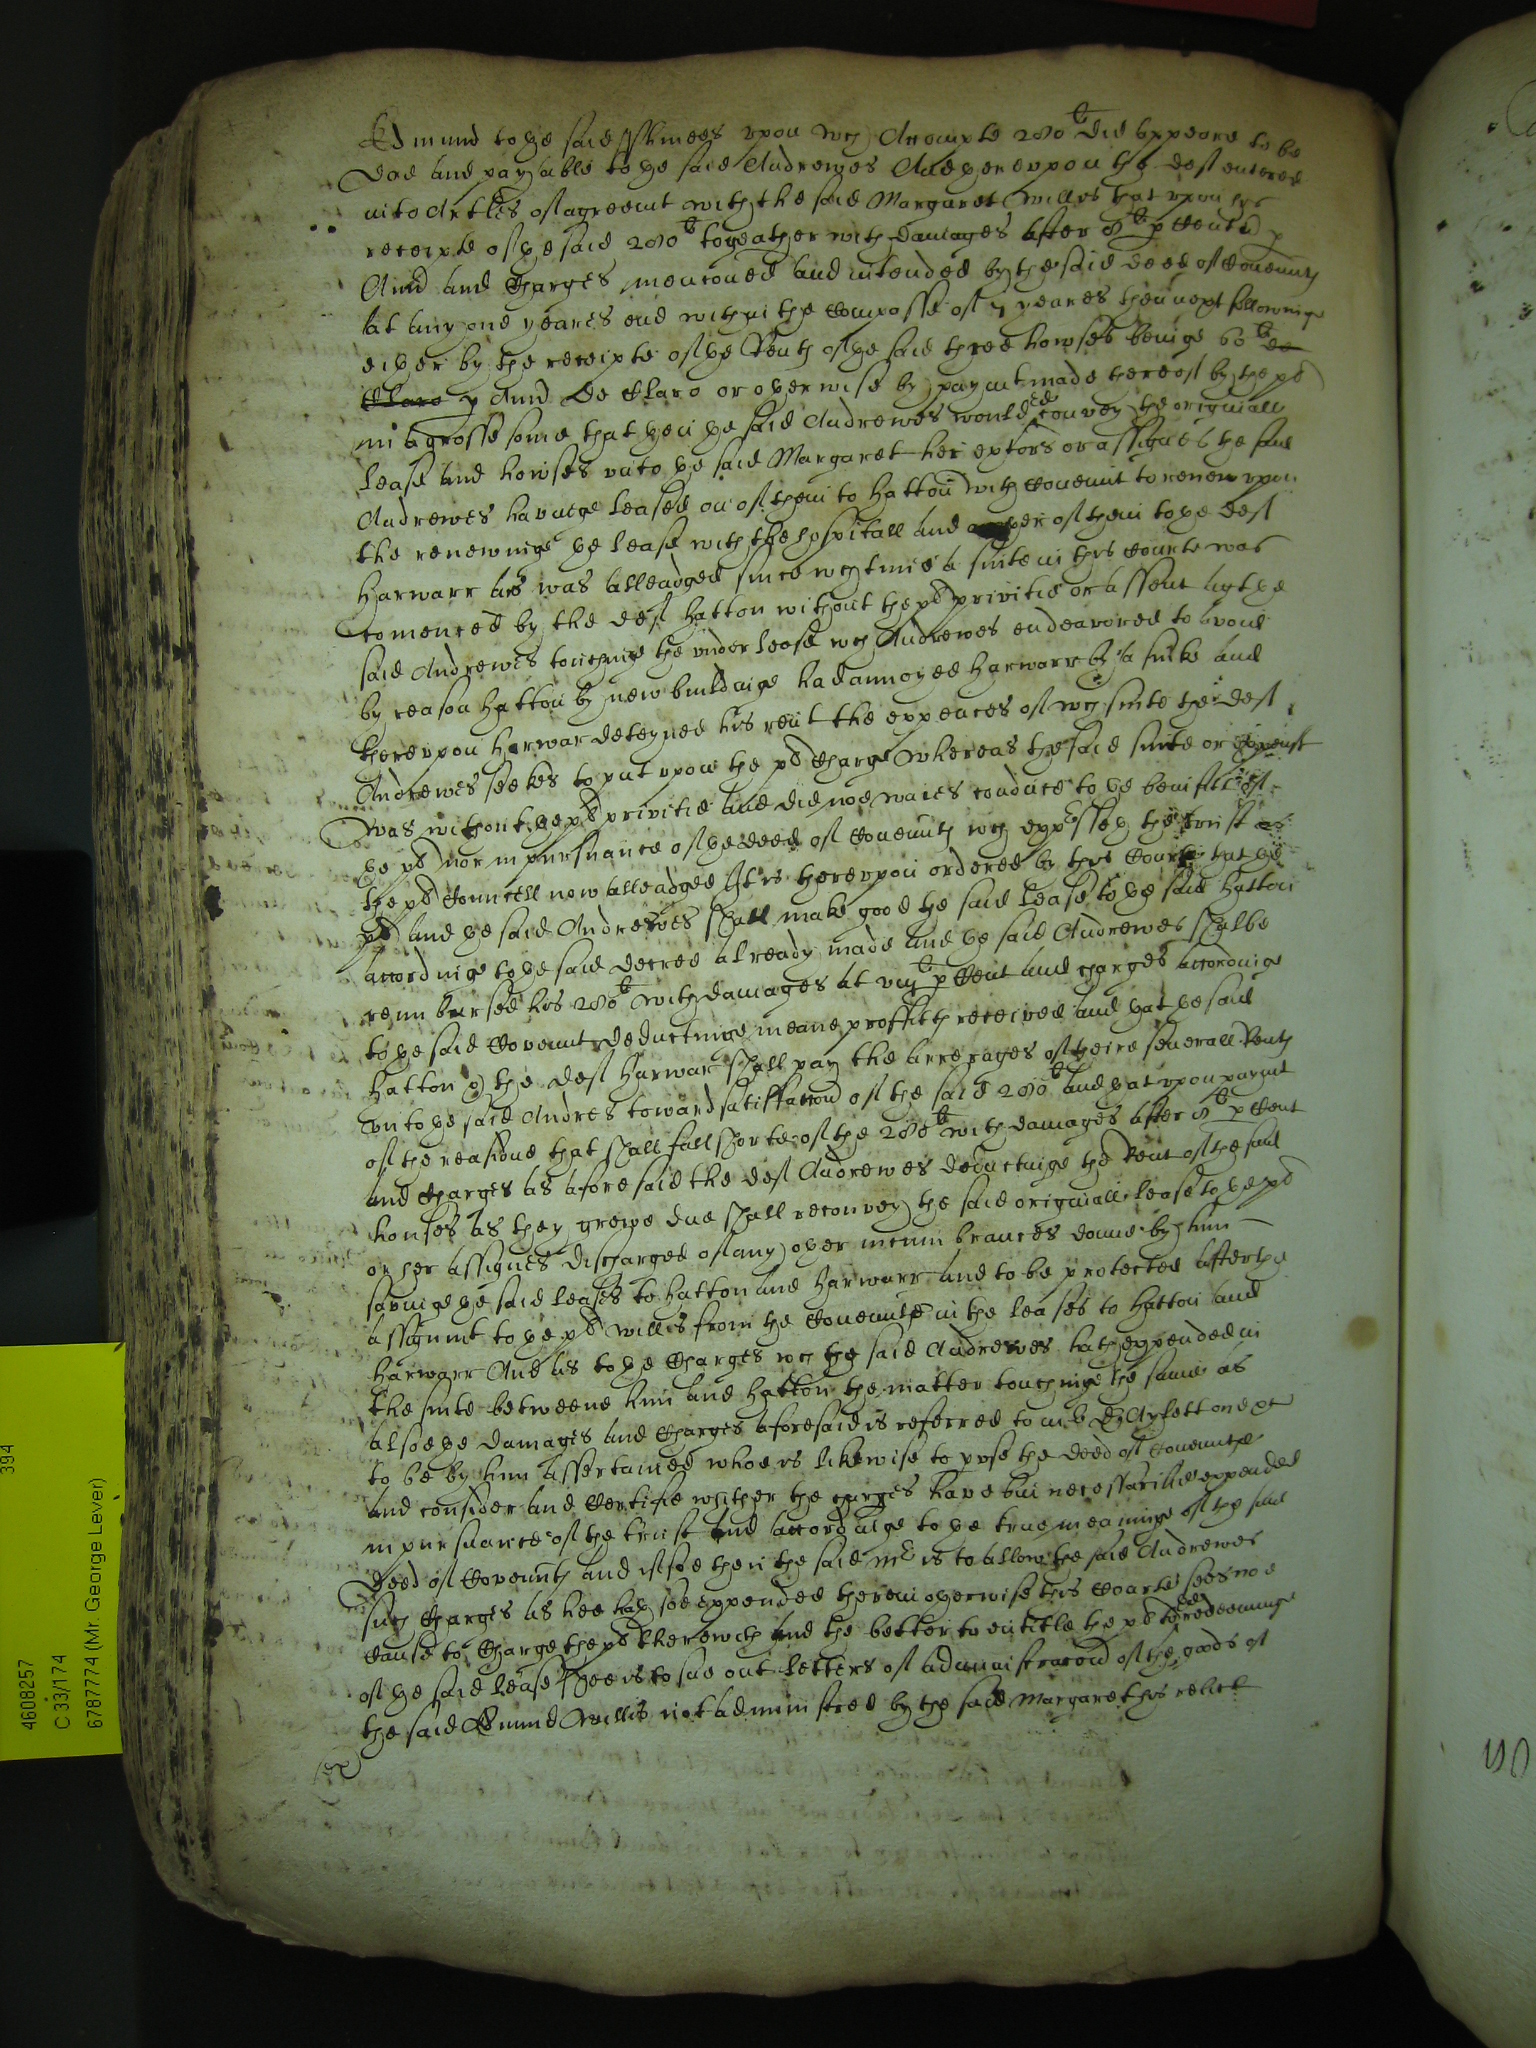 Edmund to ye said Holmees upon wch Accompte 280li did appeare to be
due and payable to ye said Andrewes And yereupon the deft entered
into Artles of agreemt with the said Margaret Willis that upon the
receipte of ye said 280li togeather with Damages after 8li p Centu p
Annu and Charges mencioned and intended by the said deed of Covennts
at any one yeares end within the Compasse of 7 yeares then next followinge
either by the receipte of ye Rents of ye said three howses beinge 60li de
Claro p Annu De Claro or oyerwise by paymt made thereof by the pl
in a grosse some that then ye said Andrewes would re convey the originall
lease and howses unto ye said Margaret her extors or assignes the said
Andrewes havinge leased on of them to Hatton with Covennt to renew upon
the renewinge ye lease with the hospitall and anoyer of them to ye deft
Harwarr as was alleadged since wch time a suite in this Courte was
comenced by the deft Hatton without the pls privitie or assent agt ye
said Andrewes touchinge the under lease wch Andrewes endeavored to avoid
by reason Hatton by new buildinge had annoyed Harwarr by a sinke and
thereupon Harwar deteyned his rent the expences of wch suite the deft
Andrewes seekes to put upon the pls Charge whereas the said suite or expense
was without ye pls privitie and did noe waies conduce to ye benifitt of
ye pl nor in pursuance of ye deed of Covennts wch expresseth the trust as
the pls Councell now alleadged It is thereupon ordered by this Courte that ye
pl and ye said Andrewes shall make good the said lease to ye said Hatton
accordinge to ye said decree already made and ye said Andrewes shalbe
reimbursed his 280li with damages at viij li p Cent and charges accordinge
to ye said Covennt deductinge meane proffitts received and yat ye said
Hatton & the deft Harwar shall pay the arrerages of theire severall Rents
unto ye said Andres toward satisfaccon of the said 280li and yat upon paymt
of the reasidue that shall fall shorte of the 280li with damages after 8li p Cent
and Charges as aforesaid the deft Andrewes deductinge the Rent of the said
houses as they grewe due shall reconvey the said originall lease to ye pl
or her assignes discharged of any oyer incumbrances donne by him
savinge ye said leases to Hatton and Harwarr and to be protected after the
assignmt to ye pl Willis from the Covennts in the leases to Hatton and
Harwarr And as to ye Charges wch the said Andrewes hath expended in
the suite betweene him and Hatton the matter touchinge the same as
alsoe ye damages and Charges aforesaid is referred to mr Dr Aylett one &c
to be by him assertained whoe is likewise to pvse the deed of Covennts
and consider and Certifie whither the charges have bin necessarilie expended
in pursuance of the trust and accordinge to ye true meaninge of the said
deed of Covennts and if soe then the said mr is to allow the said Andrewes
such Charges as hee hath soe expended therein oyerwise this Courte sees noe
Cause to Charge the pl therewth And the better to entitle the pl to ye redeeminge
of ye said lease shee is to sue out letters of administracon of the goods of
the said Edmund Willis not administred by the said Margaret his relict
4608257
C 33/174
6787774 (Mr. George Lever)
394